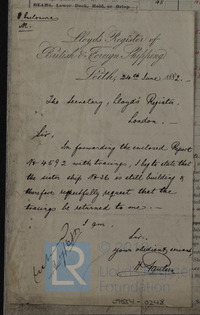 BEAMS, Lower Deck, Hold, or Orlop
1 Enclosure
M.
Lloyd's Register of
British & Foreign Shipping
Leith, 24th June 1882
The Secretary, Lloyd's Register,
London.
Sir,
In forwarding the enclosed Report
No 4592 with tracings, I beg to state that
the sister ship No 26 is still building &
therefore respectfully request that the
tracings be returned to me.
I am
Sir,
your obedient, servant
Lloyd's Register
Foundation